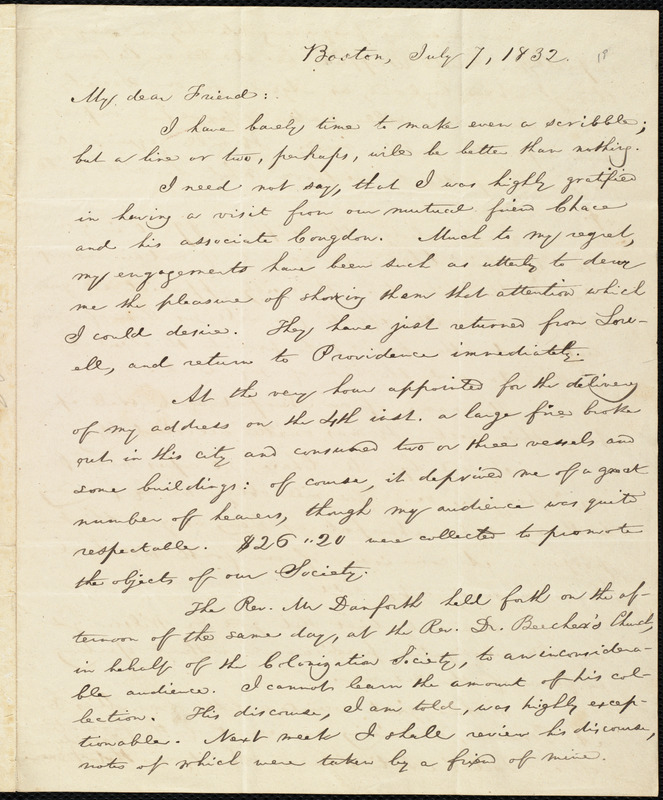 Boston, July 7, 1832.
My dear Friend:
I have barely time to make even a scribble;
but a line or two, perhaps, will be better than nothing.
I need not say, that I was highly gratified
in having a visit from our mutual friend Chace
and his associate Congdon. Much to my regret,
my engagements have been such as utterly to deny
me the pleasure of showing them that attention which
I could desire. They have just returned from Low-
ell, and return to Providence immediately.
At the very hour appointed for the delivery
of my address on the 4th inst. a large fire broke
out in this city and consumed two or three vessels and
some buildings: of course, it deprived me of a great
number of hearers, though my audience was quite
respectable. $26 "20 were collected to promote
the objects of our Society.
The Rev. Mr Danforth held forth on the af-
ternoon of the same day, at the Rev. Dr. Beecher's Church,
in behalf of the Colonization Society, to an inconsidera-
ble audience. I cannot learn the amount of his col-
lection. His discourse, I am told, was highly excep-
tionable. Next week I shall review his discourse,
notes of which were taken by a friend of mine.